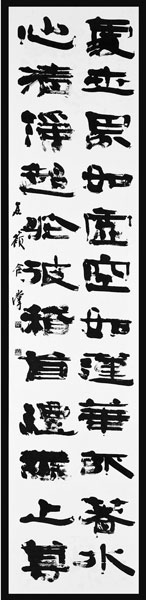 處世界如虛空如蓮華不著水
心清淨超於彼稽首禮無上尊